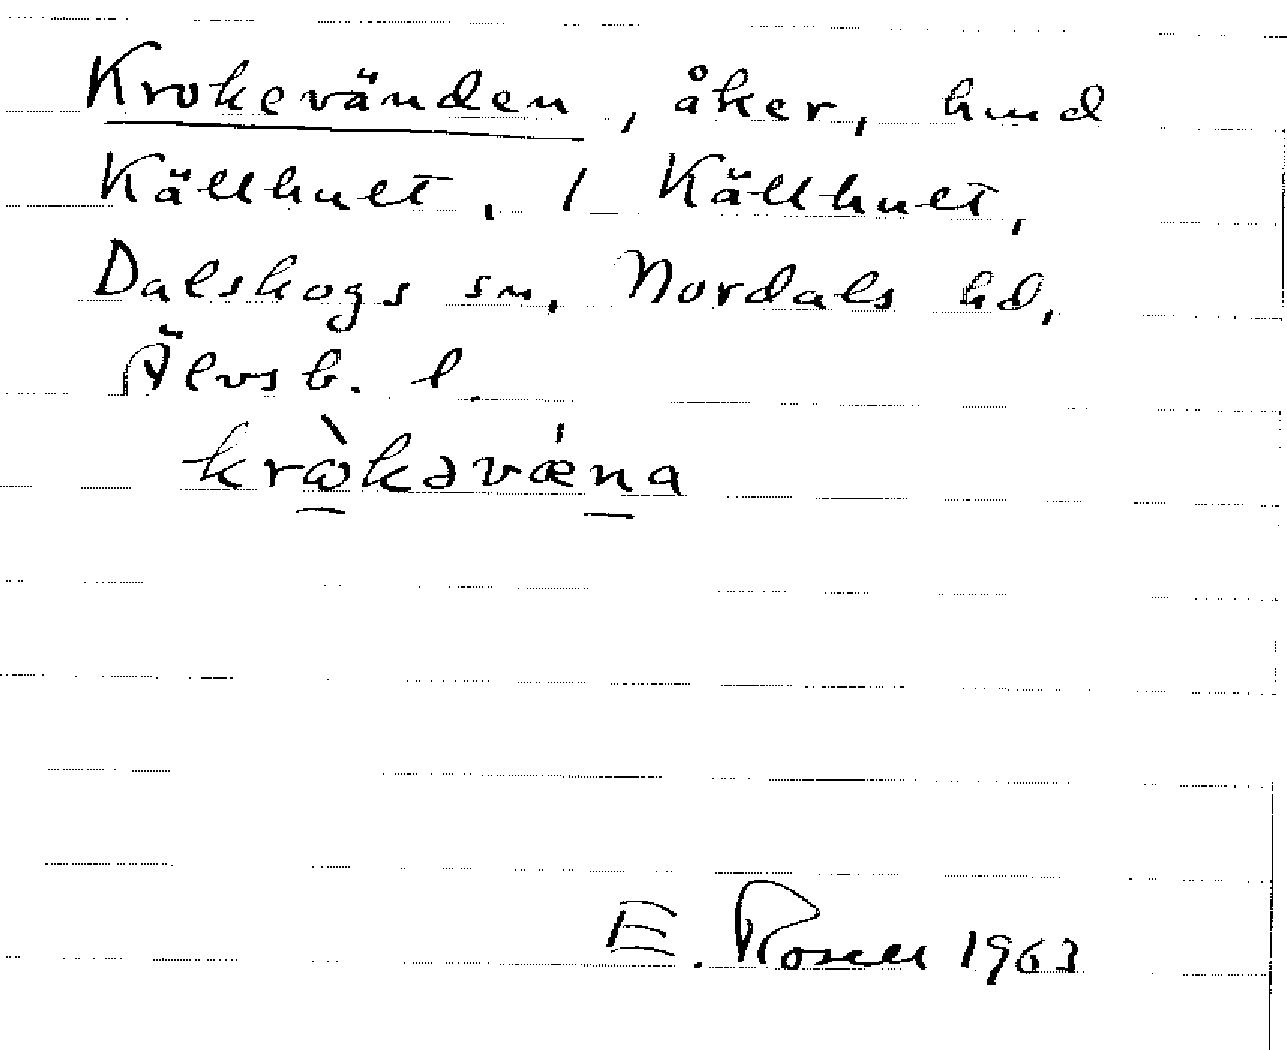 Krokevänden, åker, hmd
Källhult, 1 Källhult,
Dalskogs sn, Nordals hd,
Älvsb. l.
krὼkəvǽna
E. Rosell 1963